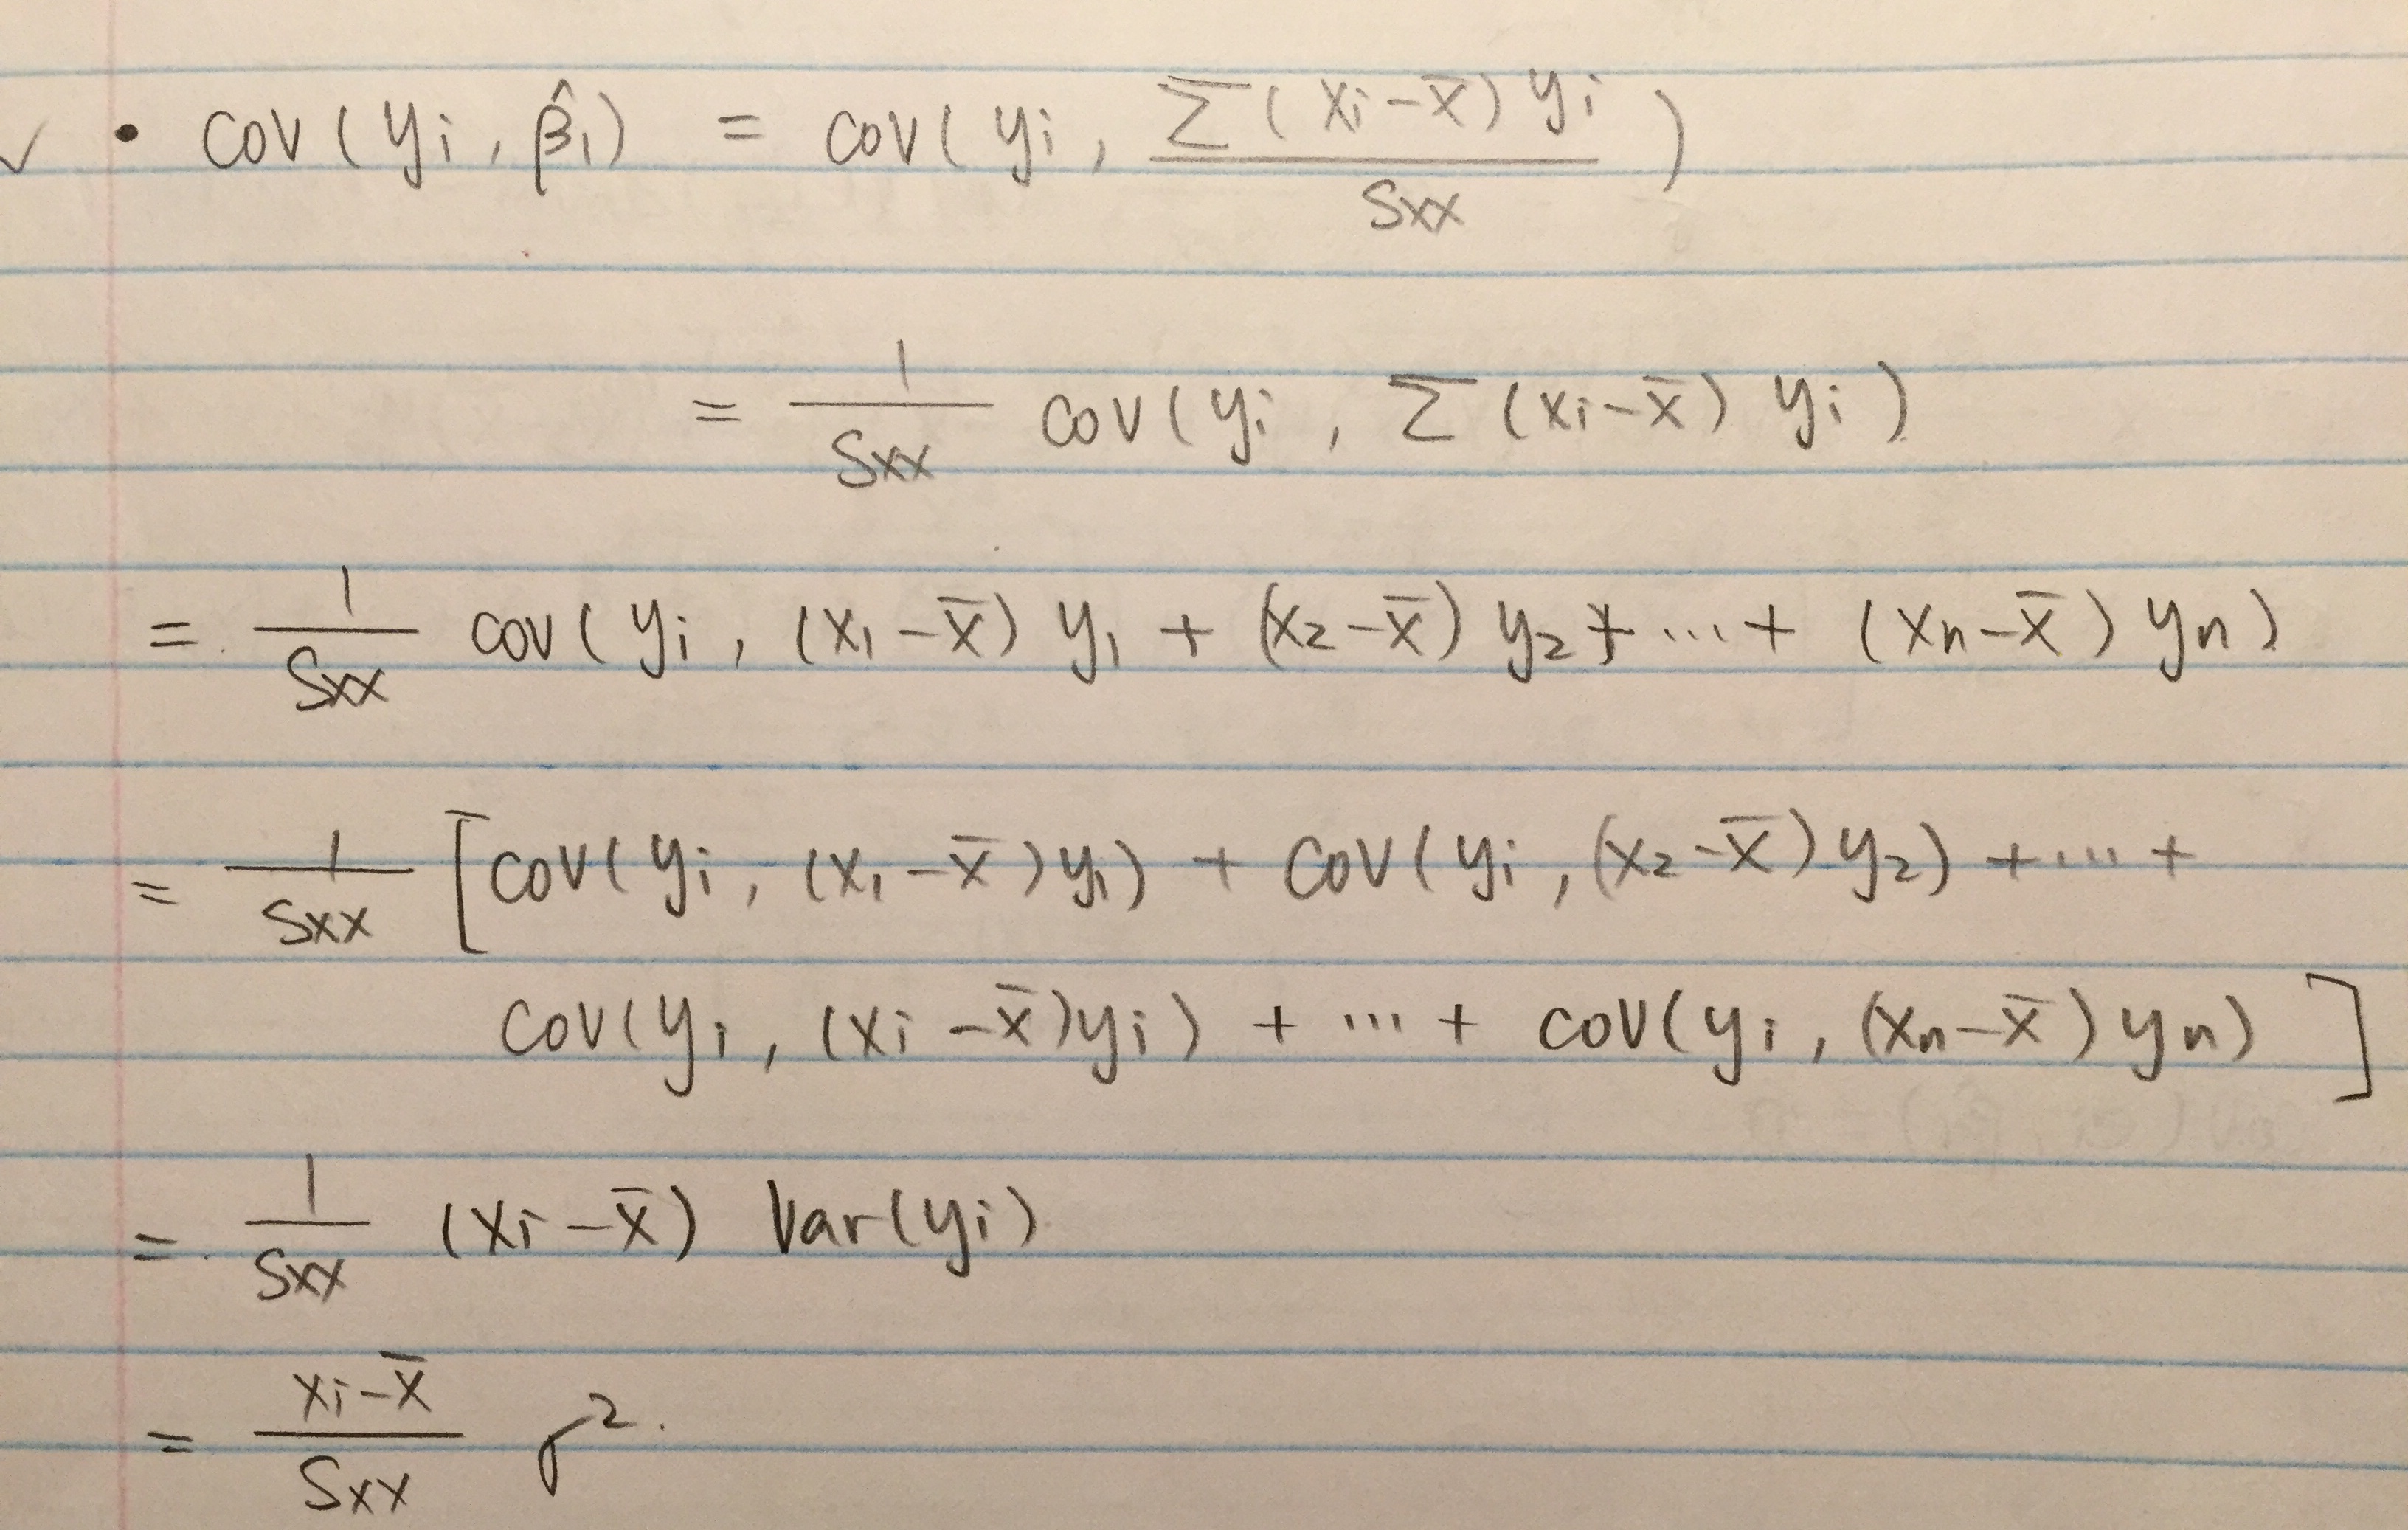 ✓ • COV ( yi , β̂₁) = COV ( yi , Σ ( xi - x̄ ) yi / Sxx )
= 1 / Sxx COV ( yi , Σ (xi - x̄) yi )
= 1 / Sxx COV ( yi , (x₁ - x̄) y₁ + (x₂ - x̄) y₂ + ... + (xn - x̄) yn )
= 1 / Sxx [ COV ( yi , (x₁ - x̄) y₁) + COV ( yi , (x₂ - x̄) y₂) + ... +
COV ( yi , (xi - x̄) yi ) + ... + COV ( yi , (xn - x̄) yn) ]
= 1 / Sxx (xi - x̄) Var(yi)
= xi - x̄ / Sxx σ² .